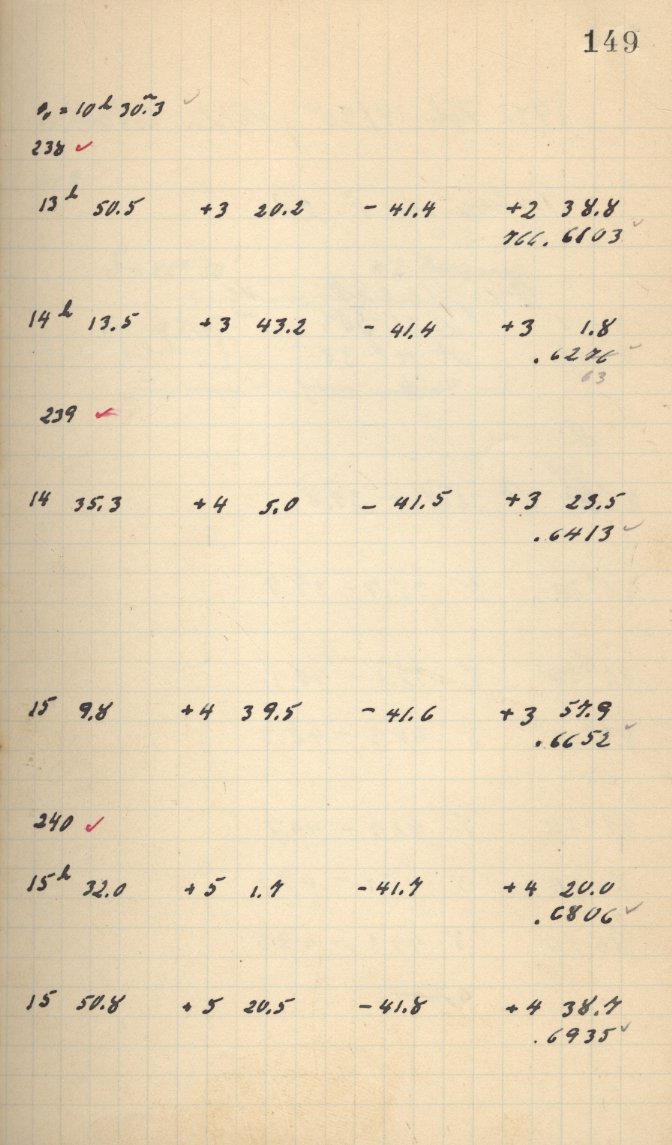 149
θ₀ = 10ʰ 30ᵐ.3 ✓
238 ✓
13ʰ 50.5 +3 20.2 - 41.4 +2 38.8
766.6103 ✓
14ʰ 13.5 +3 43.2 - 41.4 +3 1.8
.6276 ✓
63
239 ✓
14 35.3 +4 5.0 - 41.5 +3 23.5
.6413 ✓
15 9.8 +4 39.5 - 41.6 +3 57.9
.6652 ✓
240 ✓
15ʰ 32.0 +5 1.7 - 41.7 +4 20.0
.6806 ✓
15 50.8 +5 20.5 - 41.8 +4 38.7
.6935 ✓